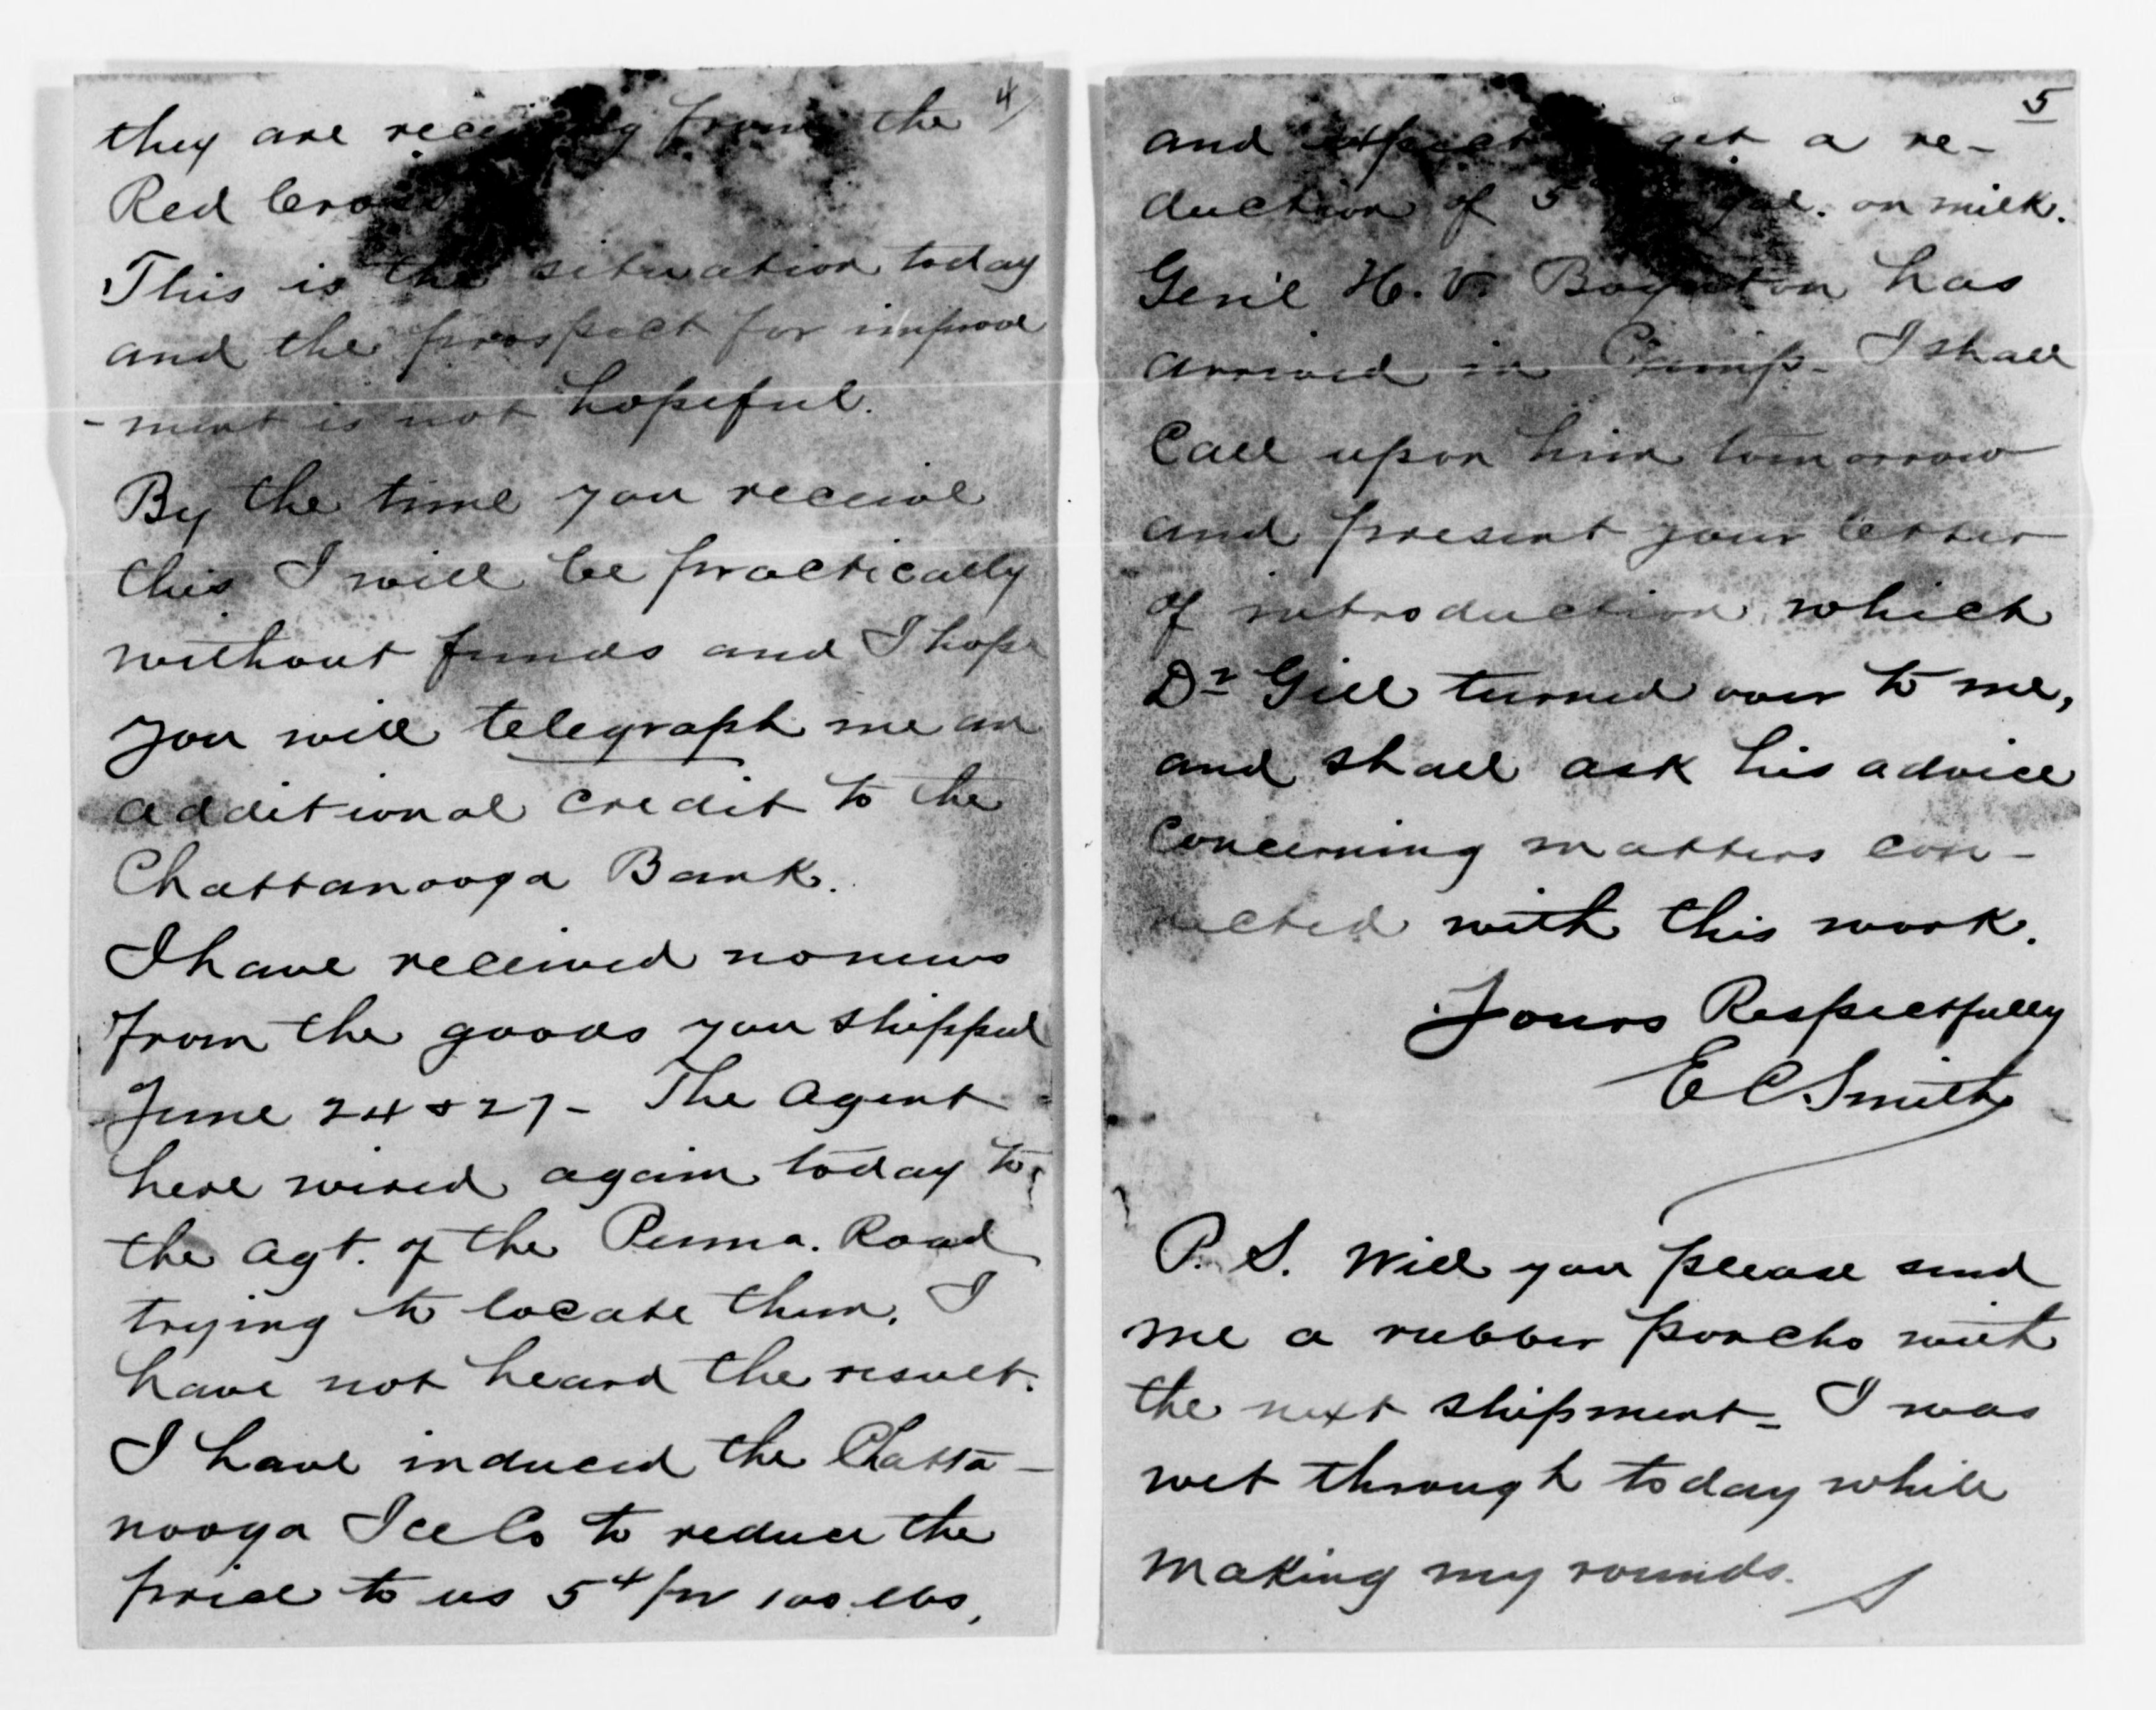 4/
they are receiving from the
Red Cross
This is the situation today
and the prospect for improve
-ment is not hopeful.
By the time you receive
this I will be practically
without funds and I hope
you will telegraph me an
additional credit to the
Chattanooga Bank.
I have received no news
from the goods you shipped
June 24 & 27 - The Agent
here wired again today to
the Agt. of the Penna. Road
trying to locate them. I
have not heard the result.
I have induced the Chatta-
nooga Ice Co to reduce the
price to us 5¢ per 100 lbs,
5
and expect get a re-
duction of 5 gal. on milk.
Gen'l H. V. Boynton has
arrived in Camp - I shall
Call upon him tomorrow
and present your letter
of introduction which
Dr Gill turned over to me,
and shall ask his advice
concerning matters con-
nected with this work.
Yours Respectfully
E C Smith
P. S. Will you please send
me a rubber poncho with
the next shipment - I was
wet through today while
making my rounds. S